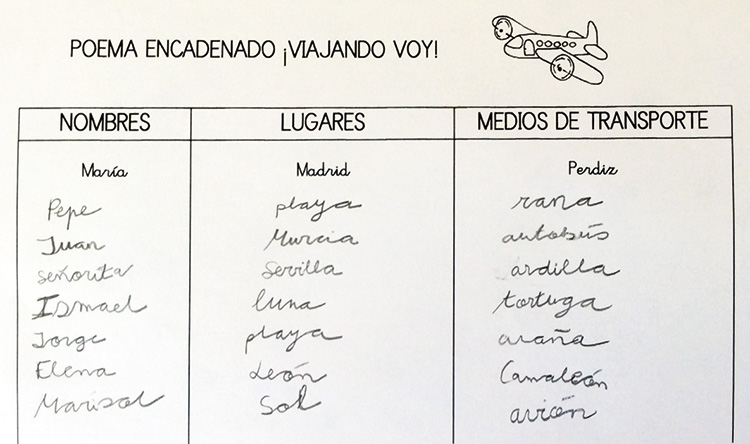 POEMA ENCADENADO ¡VIAJANDO VOY!
NOMBRES LUGARES MEDIOS DE TRANSPORTE
María Madrid Perdiz
Pepe playa rana
Juan Murcia autobús
señorita Sevilla ardilla
Ismael luna tortuga
Jorge playa araña
Elena León Camaleón
Marisol Sol avión